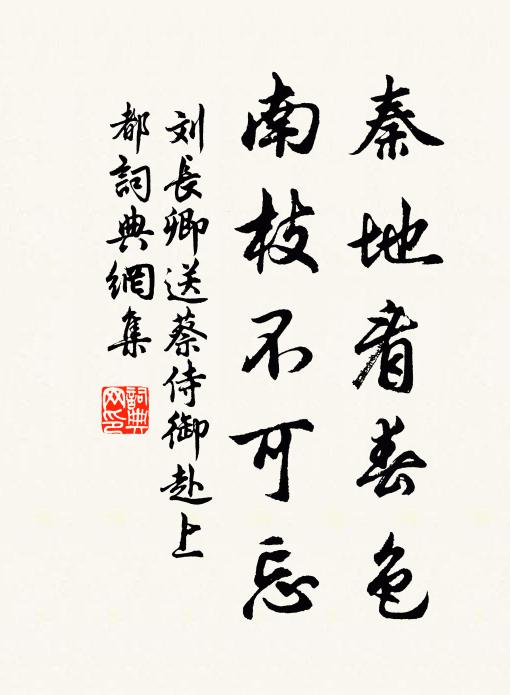 秦地看春色
南枝不可忘
刘長卿送蔡侍御赴上
都詞典網集
詞典
网印